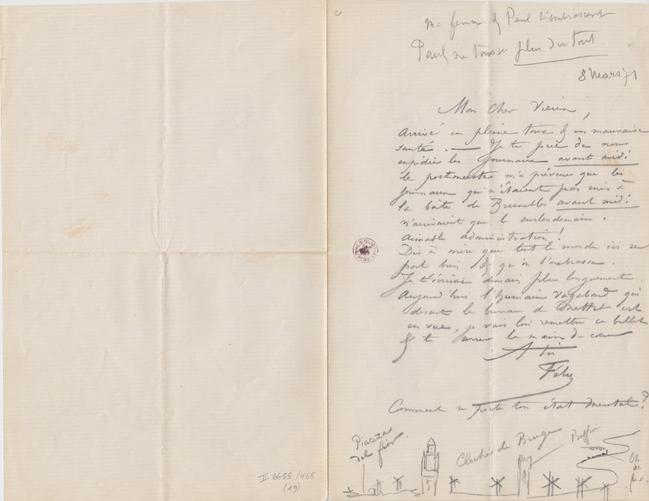 ma femme & Paul t'embrassent
Paul ne tousse plus du tout.
8 Mars 71
Mon Cher Vieux,
Arrivé en pleine toux & en mauvaise
santé. — Je te prie de nous
expédier les journaux avant midi
le postmeester m'a prévenu que les
journaux qui n'étaient pas mis à
la boîte de Bruxelles avant midi
n'arrivaient que le surlendemain.
Aimable administration!
Dis à mère que tout le monde ici se
porte bien & qu'on l'embrasse.
Je t'écrirai demain plus longuement.
Aujourd'hui l'humain vagabond qui
dessert le bureau de est
en vue, je vais lui remettre ce billet
& te serrer la main de cœur
A toi
Comment se porte ton état mental?
Piazza
Clocher de Bruges
II 6655/465
(19)